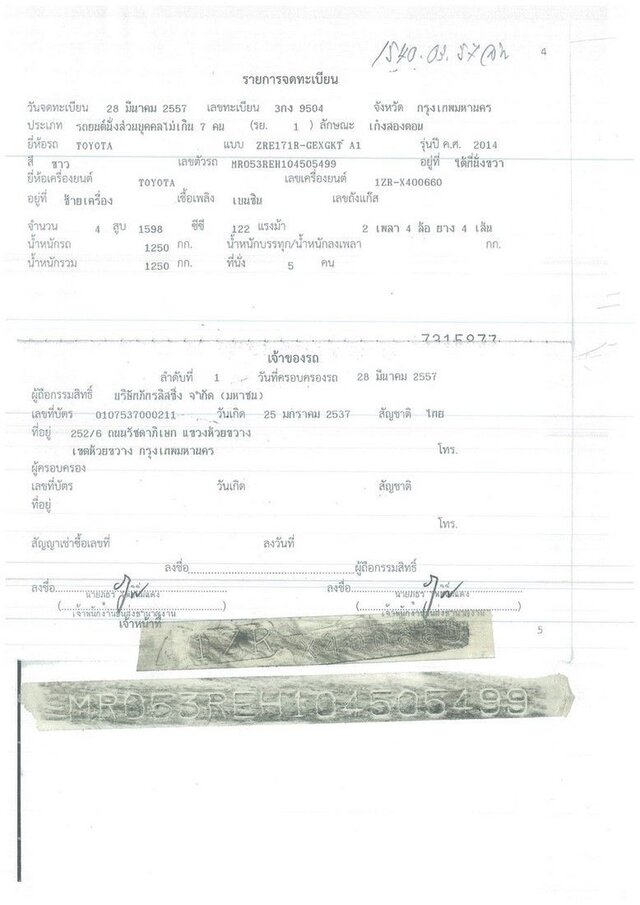 4
รายการจดทะเบียน
วันจดทะเบียน 28 มีนาคม 2557 เลขทะเบียน 3กง 9504 จังหวัด กรุงเทพมหานคร
ประเภท รถยนต์นั่งส่วนบุคคลไม่เกิน 7 คน (รย. 1 ) ลักษณะ เก๋งสองตอน
ยี่ห้อรถ TOYOTA แบบ ZRE171R-GEXGKT A1 รุ่นปี ค.ศ. 2014
สี ขาว เลขตัวรถ MR053REH104505499 อยู่ที่ ใต้ที่นั่งขวา
ยี่ห้อเครื่องยนต์ TOYOTA เลขเครื่องยนต์ 1ZR-X400660
อยู่ที่ ซ้ายเครื่อง เชื้อเพลิง เบนซิน เลขถังแก๊ส
จำนวน 4 สูบ 1598 ซีซี 122 แรงม้า 2 เพลา 4 ล้อ ยาง 4 เส้น
น้ำหนักรถ 1250 กก. น้ำหนักบรรทุก/น้ำหนักลงเพลา กก.
น้ำหนักรวม 1250 กก. ที่นั่ง 5 คน
7315877
เจ้าของรถ
ลำดับที่ 1 วันที่ครอบครองรถ 28 มีนาคม 2557
ผู้ถือกรรมสิทธิ์ บริษัทภัทรลิสซิ่ง จำกัด (มหาชน)
เลขที่บัตร 0107537000211 วันเกิด 25 มกราคม 2537 สัญชาติ ไทย
ที่อยู่ 252/6 ถนนรัชดาภิเษก แขวงห้วยขวาง
เขตห้วยขวาง กรุงเทพมหานคร โทร.
ผู้ครอบครอง
เลขที่บัตร วันเกิด สัญชาติ
ที่อยู่
โทร.
สัญญาเช่าซื้อเลขที่ ลงวันที่
ลงชื่อ ผู้ถือกรรมสิทธิ์
ลงชื่อ ลงชื่อ
เจ้าหน้าที่
5
MR053REH104505499